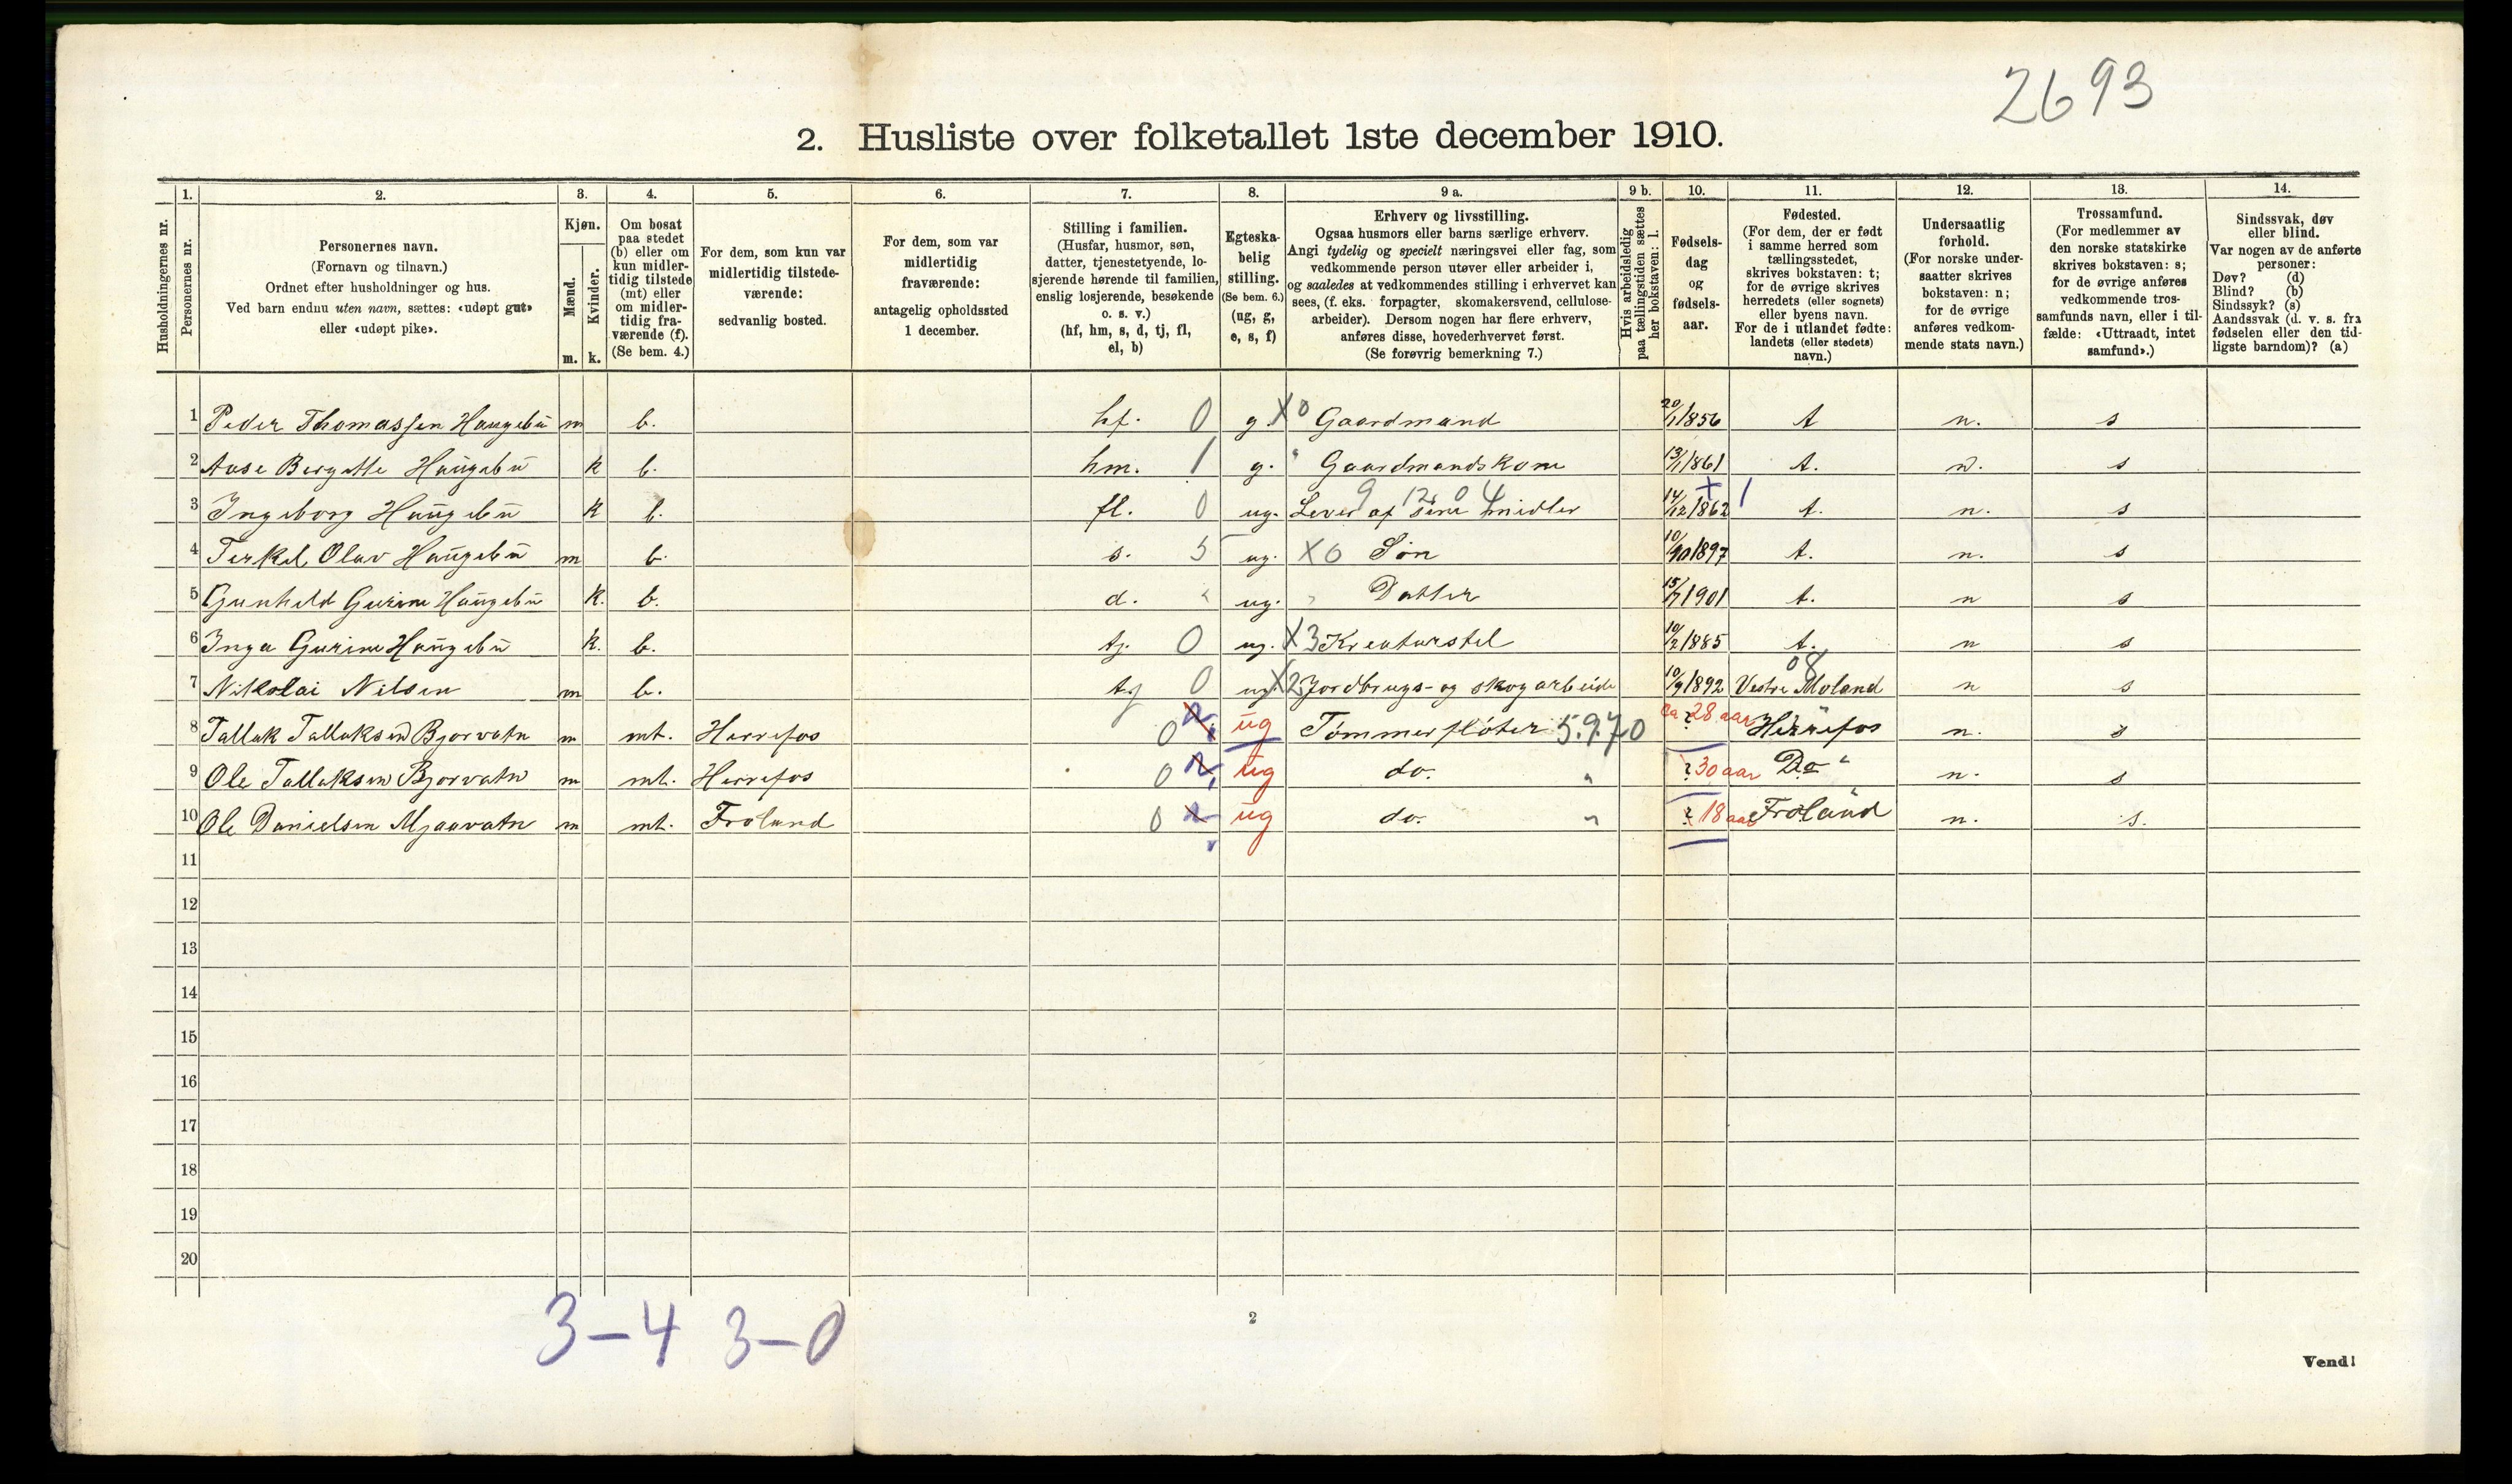 2693
2. Husliste over folketallet 1ste december 1910.
Husholdningernes nr.
1. Personernes nr.
2. Personernes navn. (Fornavn og tilnavn.) Ordnet efter husholdninger og hus. Ved barn endnu uten navn, sættes: «udøpt gut» eller «udøpt pike».
3. Kjøn. Mænd. m. Kvinder. k.
4. Om bosat paa stedet (b) eller om kun midlertidig tilstede (mt) eller om midlertidig fraværende (f). (Se bem. 4.)
5. For dem, som kun var midlertidig tilstedeværende: sedvanlig bosted.
6. For dem, som var midlertidig fraværende: antagelig opholdssted 1 december.
7. Stilling i familien. (Husfar, husmor, søn, datter, tjenestetyende, losjerende hørende til familien, enslig losjerende, besøkende o. s. v.) (hf, hm, s, d, tj, fl, el, b)
8. Egteskabelig stilling. (Se bem. 6.) (ug, g, e, s, f)
9 a. Erhverv og livsstilling. Ogsaa husmors eller barns særlige erhverv. Angi tydelig og specielt næringsvei eller fag, som vedkommende person utøver eller arbeider i, og saaledes at vedkommendes stilling i erhvervet kan sees, (f. eks. forpagter, skomakersvend, cellulosearbeider). Dersom nogen har flere erhverv, anføres disse, hovederhvervet først. (Se forøvrig bemerkning 7.)
9 b. Hvis arbeidsledig paa tællingstiden sættes her bokstaven: l.
10. Fødselsdag og fødselsaar.
11. Fødested. (For dem, der er født i samme herred som tællingsstedet, skrives bokstaven: t; for de øvrige skrives herredets (eller sognets) eller byens navn. For de i utlandet fødte: landets (eller stedets) navn.)
12. Undersaatlig forhold. (For norske undersaatter skrives bokstaven: n; for de øvrige anføres vedkommende stats navn.)
13. Trossamfund. (For medlemmer av den norske statskirke skrives bokstaven: s; for de øvrige anføres vedkommende trossamfunds navn, eller i tilfælde: «Uttraadt, intet samfund».)
14. Sindssvak, døv eller blind. Var nogen av de anførte personer: Døv? (d) Blind? (b) Sindssyk? (s) Aandssvak (d. v. s. fra fødselen eller den tidligste barndom)? (a)
1 Peder Thomassen Haugebu m b. hf. 0 g. X 0 Gaardmand 20/1 1856 t n. s
2 Aase Bergitte Haugebu k b. hm. 1 g. " Gaardmandskone 13/1 1861 t. n. s
3 Ingeborg Haugebu k b. fl. 0 ug. Lever af sine midler 9 12 0 4 14/12 1862 t. n. s
4 Terkel Olav Haugebu m b. s. 5 ug. X0 Søn 10/10 1897 t. n. s
5 Gunhild Gurine Haugebu k. b. d. " ug. " Datter 15/7 1901 t. n s
6 Inga Gurine Haugebu k. b. tj. 0 ug. X3 Kreaturstel 10/2 1885 t. n s
7 Nikolai Nilsen m b. tj 0 ug. X2 Jordbrugs- og skogarbeide 10/9 1892 Vestre Moland 08 n s
8 Tallak Tallaksen Bjorvatn m mt. Herrefos 0 2 ug Tømmerfløter 5.970 ca 28 aar Herrefos n. s
9 Ole Tallaksen Bjorvatn m mt. Herrefos 0 2 ug do. " ? 30 aar Do " n. s
10 Ole Danielsen Mjaavatn m mt. Froland 0 2 ug do. " ? 18 aar Froland n. s.
11
12
13
14
15
16
17
18
19
20
3-4 3-0
2
Vend!